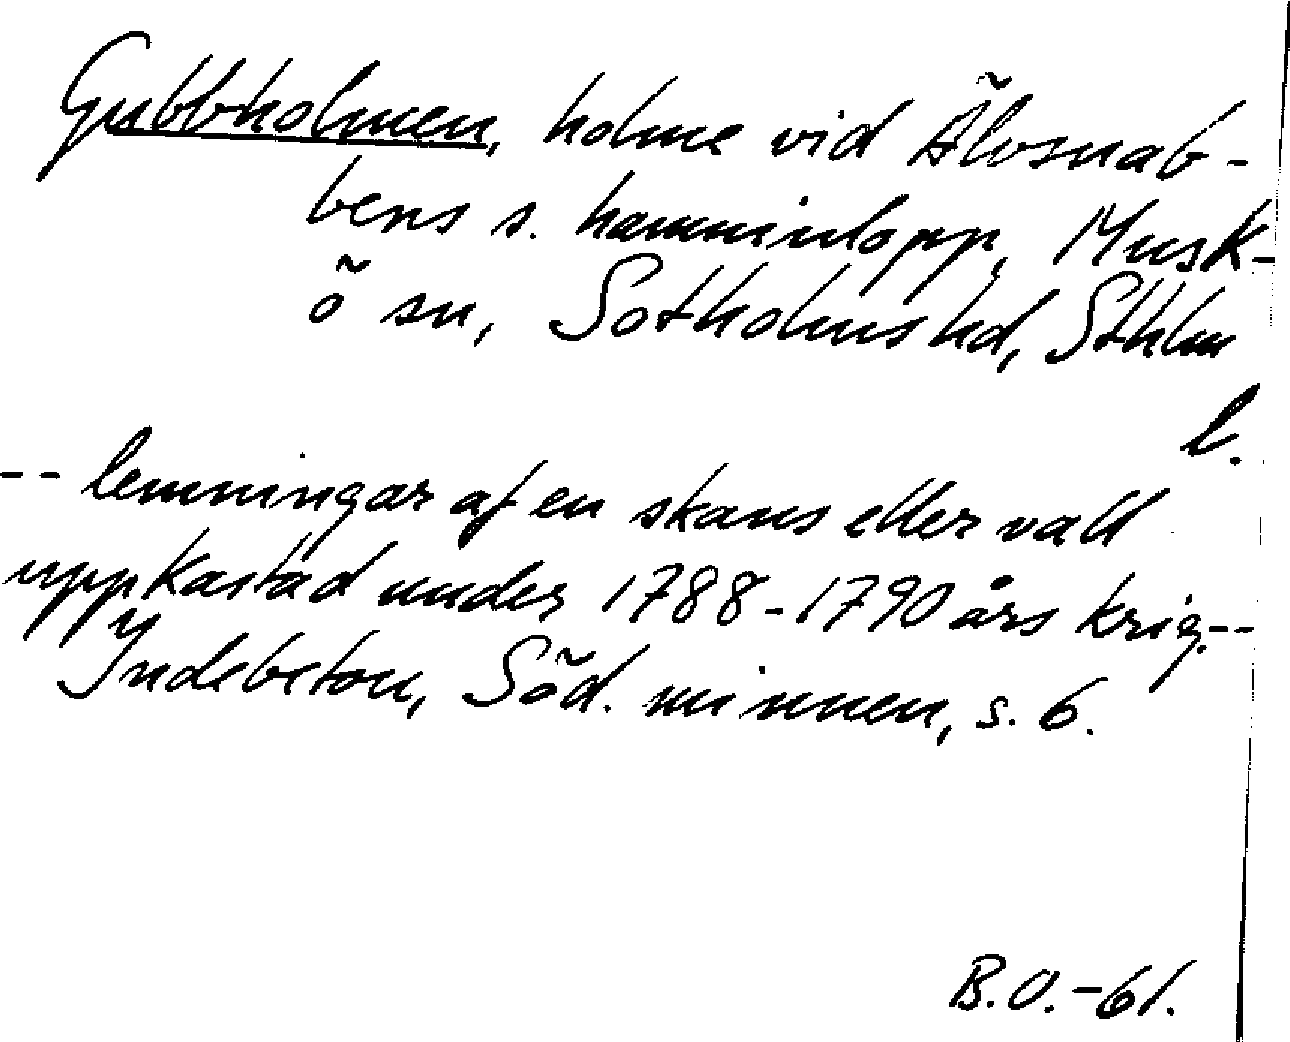 Gubbholmen, holme vid Älvsnab-
bens s. hamninlopp, Musk-
ö sn, Sotholms hd, Sthlm
l.
-- lemningar af en skans eller vall
uppkastad under 1788-1790 års krig.--
Indebetou, Söd. minnen, s. 6.
B.O.-61.